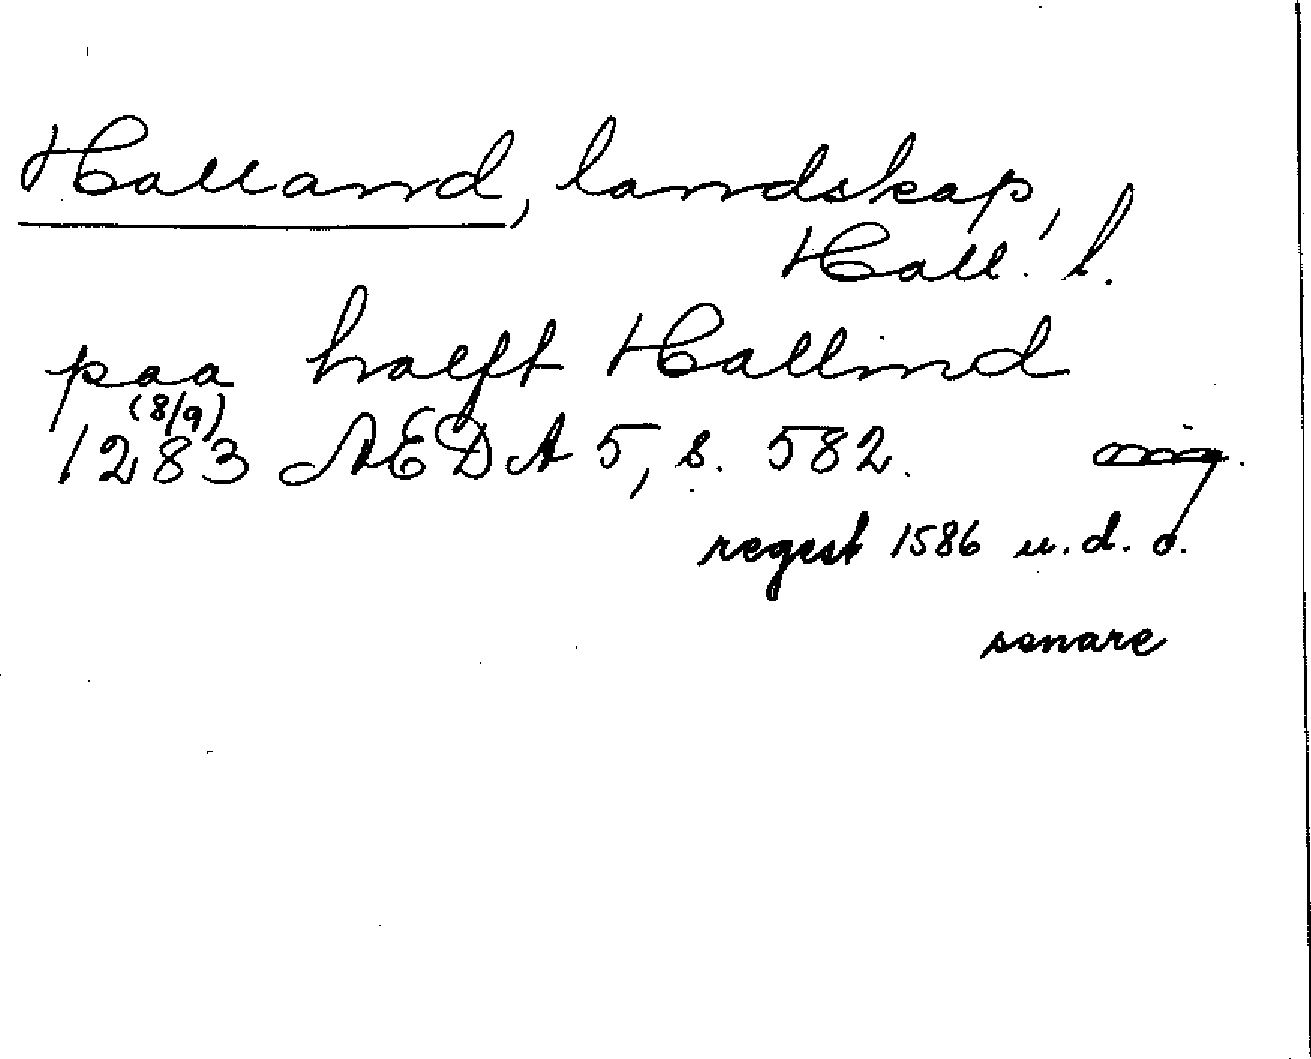 Halland, landskap,
Hall. l.
paa halft Hallind
(8/9)
1283 ÆDA 5, s. 582.
regest 1586 u. d. o.
senare